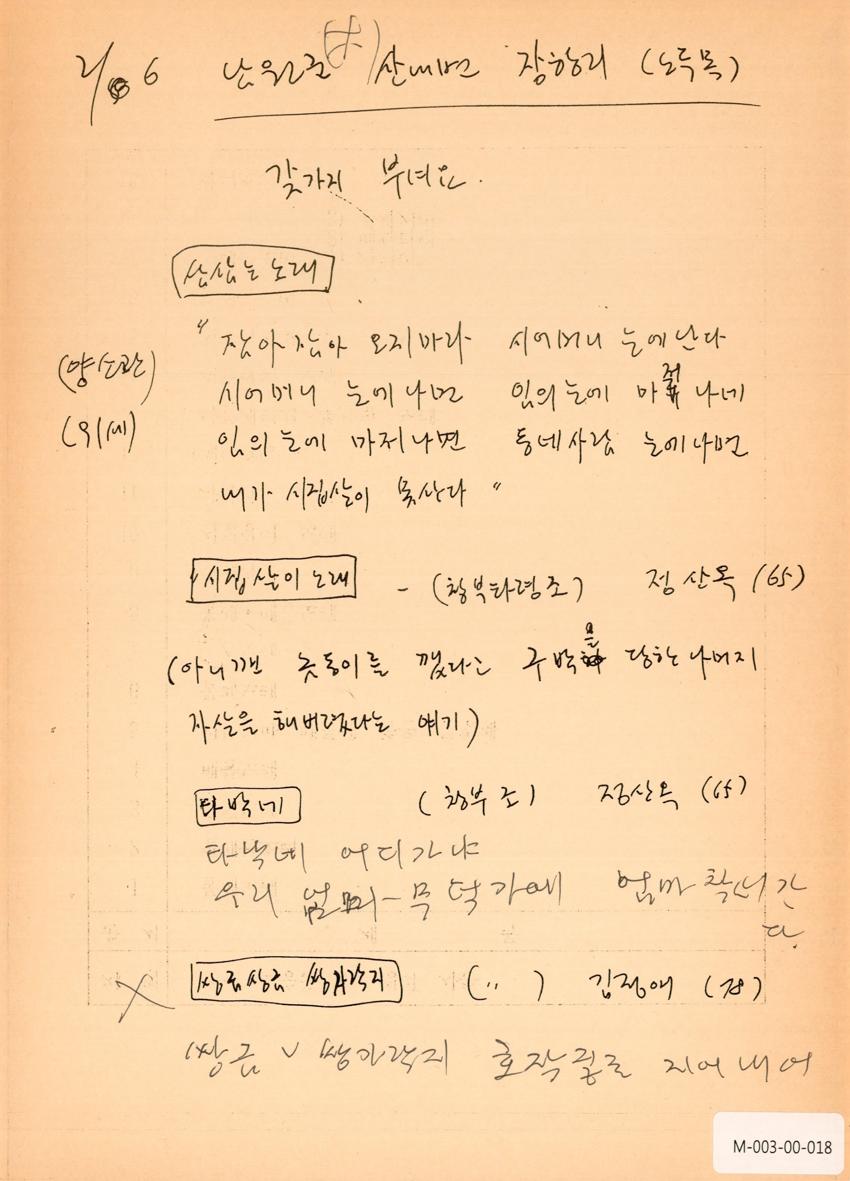 2/6 남원군 산내면 장항리 (노루목)
갖가지 부녀요.
삼삼는 노래
" 잠아 잠아 오지마라 시어머니 눈에난다
(양순관) 시어머니 눈에나면 임의눈에 마저 나네
(외세) 임의눈에 마저나면 동네사람 눈에나면
내가 시집살이 못산다 "
시집살이 노래 - (창부타령조) 정산옥 (65)
(아니깬 놋동이를 깼다고 구박을 당한 나머지
자살을 해버렸다는 얘기)
타박네 (창부조) 정산옥 (65)
타박네 어디가냐
우리 엄마 무덕가에 엄마 찾어 간
다.
쌍금쌍금 쌍가락지 ( 〃 ) 김정애 (78)
쌍금 ∨ 쌍가락지 호작질로 지어내어
M-003-00-018